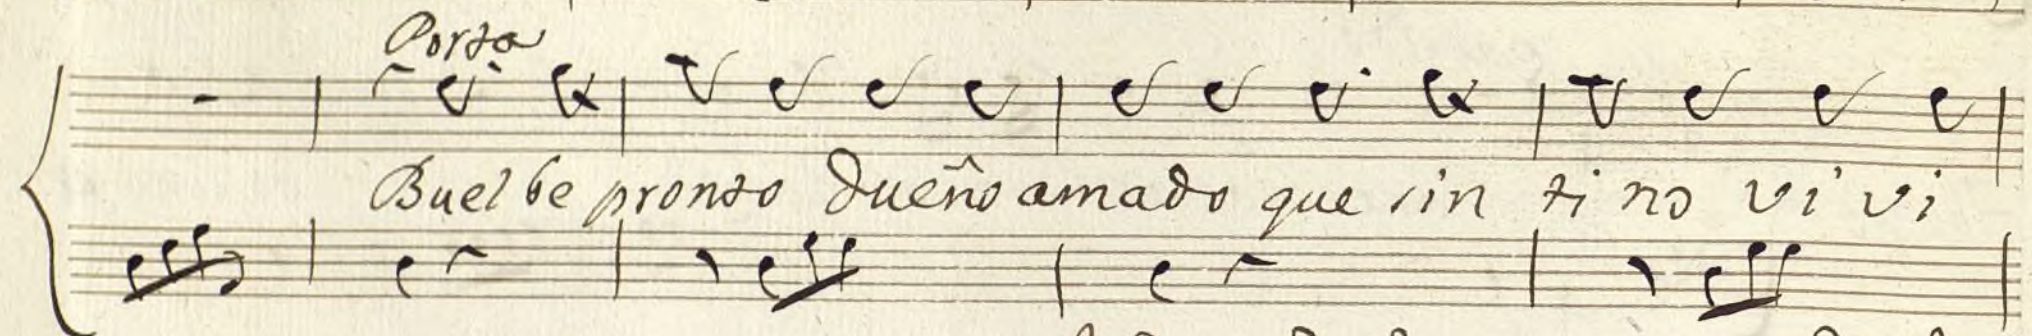 Porta
Buelbe pronto dueño amado que sin ti no vi vi